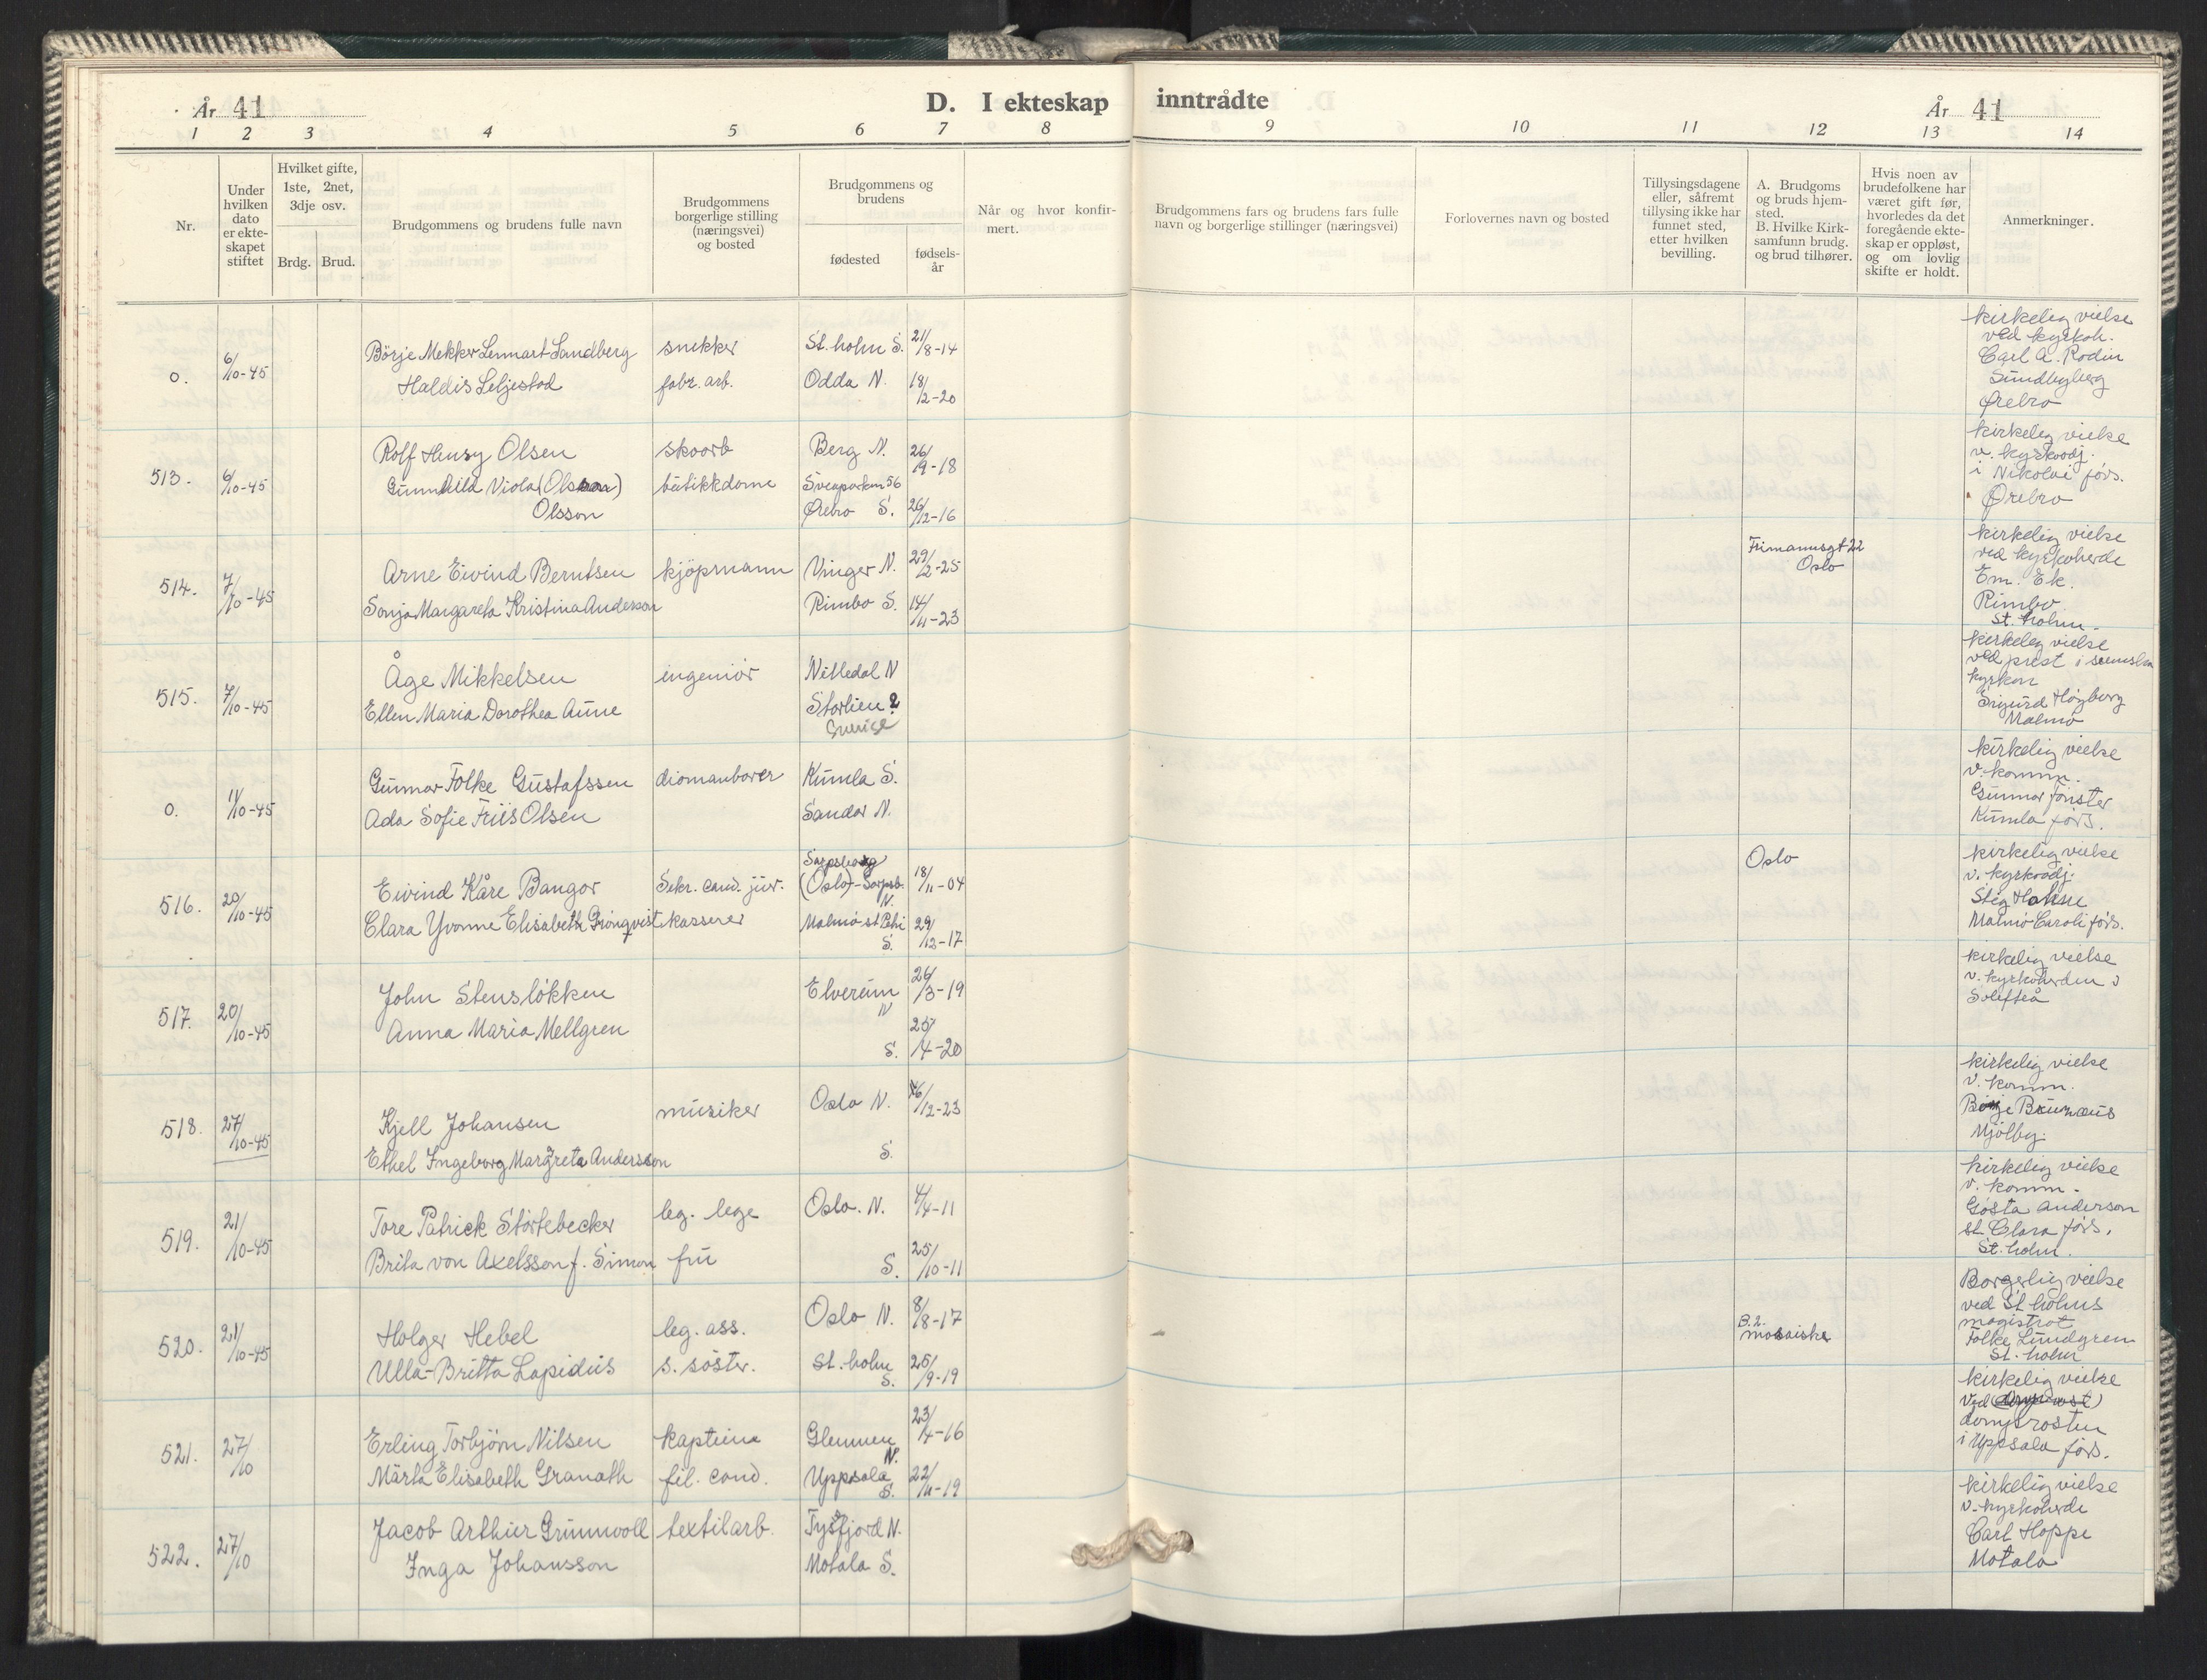 År 41
D. I ekteskap inntrådte
År 41
1 2 3 4 5 6 7 8 9 10 11 12 13 14
Nr.
Under hvilken dato er ekteskapet stiftet
Hvilket gifte, 1ste, 2net, 3dje osv.
Brdg. Brud.
Brudgommens og brudens fulle navn
Brudgommens borgerlige stilling (næringsvei) og bosted
Brudgommens og brudens
fødested
fødsels-år
Når og hvor konfir-mert.
Brudgommens fars og brudens fars fulle navn og borgerlige stillinger (næringsvei)
Forlovernes navn og bosted
Tillysingsdagene eller, såfremt tillysing ikke har funnet sted, etter hvilken bevilling.
A. Brudgoms og bruds hjem-sted. B. Hvilke Kirk-samfunn brudg. og brud tilhører.
Hvis noen av brudefolkene har været gift før, hvorledes da det foregående ekte-skap er oppløst, og om lovlig skifte er holdt.
Anmerkninger.
0. 6/10-45
Börje Lennart Sandberg snekker St. holm S. 21/8-14
Haldis Liljestad fabr. arb. Odda N. 18/12-20
kirkelig vielse
ved kyrkoh.
Carl A. Rodin
Sundbyberg
Ørebro
513. 6/10-45
Rolf Henry Olsen Berg N. 26/19-18
Viola
Olsson
butikkdame
Sveaparken 56
Ørebro S. 26/12-16
kirkelig vielse
v. kyrkoadj.
i Nikolai førs.
Ørebro
514. 7/10-45
Arne Eivind Berntsen kjöpmann Vinger N. 29/2-25
Sonja Margareta Kristina Andersson Rimbo S. 14/11-23
Frimannsgt 22
Oslo
kirkelig vielse
ved kyrkoherde
Em. Ek.
Rimbo
St. holm.
515. 7/10-45
Åge Mikkelsen ingeniör Nittedal N
Ellen Maria Dorothea Aune Storlien ?
Sverige
kirkelig vielse
ved prest i svenska
kyrkan
Sigurd Högberg
Malmö
0. 11/10-45
Gunnar Folke Gustafssen diamanborer Kumla S.
Ada Sofie Friis Olsen Sandar N.
kirkelig vielse
v. komm.
Gunnar Fönster
Kumla förs.
516. 20/10-45
Eivind Kåre Bangor Sekr. cand. jur. Sarpsborg
(Oslo) - Sarpsb. N. 18/11-04
Clara Yvonne Elisabeth Grönqvist kasserer Malmö St Petri S. 29/12-17
Oslo
kirkelig vielse
v. kyrkoadj.
Stig Hahne
Malmö Caroli förs.
517. 20/10-45
John Stenslökken Elverum N 26/3-19
Anna Maria Mellgren S. 25/4-20
kirkelig vielse
v. kyrkoherden i
Solefteå
518. 27/10-45
Kjell Johansen musiker Oslo N. 16/12-23
Ethel Ingeborg Margreta Andersson S.
kirkelig vielse
v. komm.
Börje Brunnæus
Mjölby.
519. 21/10-45
Tore Patrick Störtebecker leg. lege Oslo. N. 4/4-11
Brita von Axelsson f. Simon fru S. 25/10-11
kirkelig vielse
v. komm.
Gösta Anderson
st. Clara förs.
St. holm.
520. 21/10-45
Holger Hebel leg. ass. Oslo N. 8/8-17
Ulla-Britta Lapidus s. söster. St. holm S. 25/9-19
B. 2.
mosaiske
Borgerlig vielse
ved St. holms
magistrat
Folke Lundgren
St. holm
521. 27/10
Erling Torbjörn Nilsen kaptein Glemmen N. 23/4-16
Märta Elisabeth Granath fil. cand. Uppsala S. 22/11-19
kirkelig vielse
ved
domprosten
i Uppsala förs.
522. 27/10
Jacob Arthur Grünvoll textilarb. Tysfjord N.
Inga Johansson Motala S.
kirkelig vielse
v. kyrkoherde
Carl Hoppe
Motala